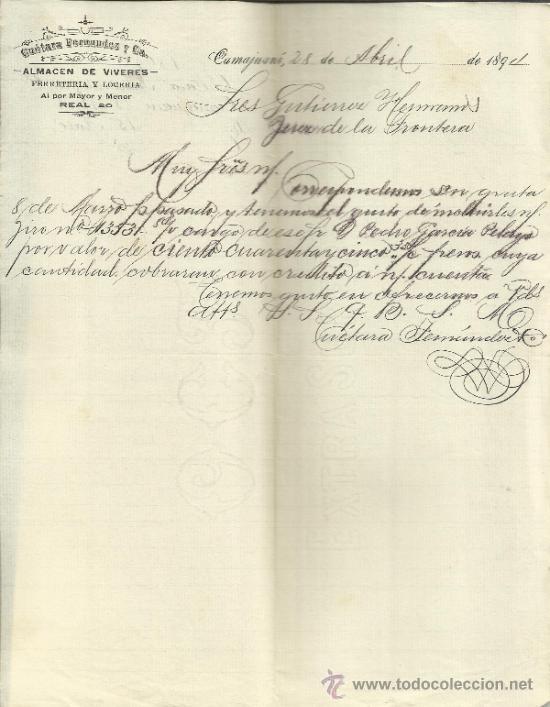 Cuétara Fernandez y Ca.
ALMACEN DE VIVERES
FERRETERIA Y LOCERIA
Al por Mayor y Menor
REAL 80
Camajuaní, 28 de Abril de 1891
Sres Gutierrez Hermanos
Jerez de la Frontera
Muy Sres ns/.
Correspondemos su grata
8 de Marzo pp pasado y tenemos el gusto de incluirles n/
Giro nº 13531 cargo de ese Sr D Pedro Garcia Pelayo
por valor de Ciento Cuarenta y cinco pesos cuya
cantidad cobraran con credito a n/ cuenta
Tenemos gusto en ofrecernos a Vds
Atts. S. S. Q. B. S. M.
Cuétara Fernández Co
EXTRAS
todocoleccion
www.todocoleccion.net